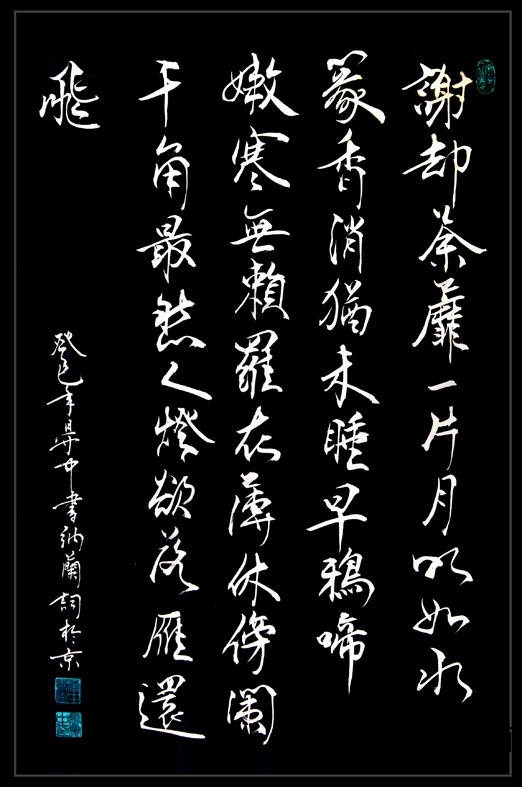 謝却荼蘼一片月明如水
篆香消猶未睡早鴉啼
嫩寒無賴羅衣薄休傍闌
干角最愁人燈欲落雁還
飛
癸巳年中書納蘭詞於京